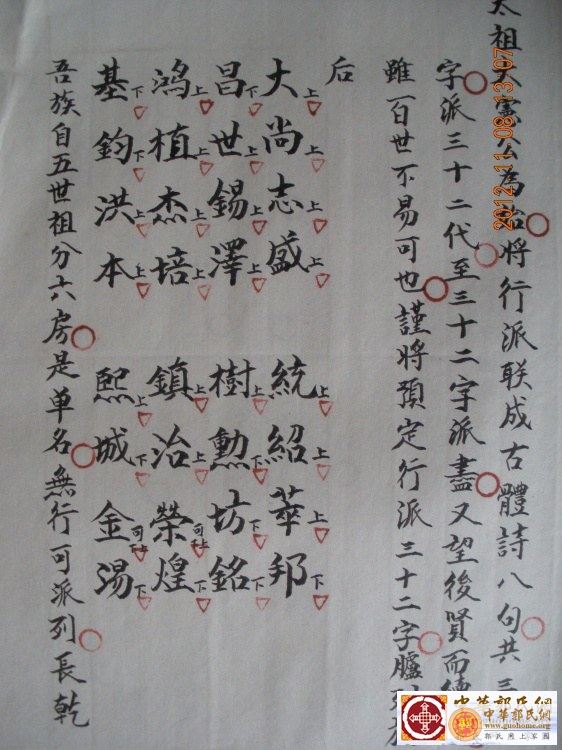 太祖大憲公為始將行派联成古體詩八句共三
字派三十二代至三十二字派盡又望後賢而續
雖百世不易可也謹將預定行派三十二字臚列
后
大上尚上志上盛上 統上紹上華上邦下
昌下世上錫上澤上 樹上勳下坊下銘下
鸿上植上杰上培上 鎮上治上榮可上煌下
基下鈞下洪上本上 熙上城下金可上湯下
吾族自五世祖分六房是單名無行可派列長乾
2012-11-08 13:07
中华郭氏網
中華郭氏網
www.guohome.org
郭氏網上家園